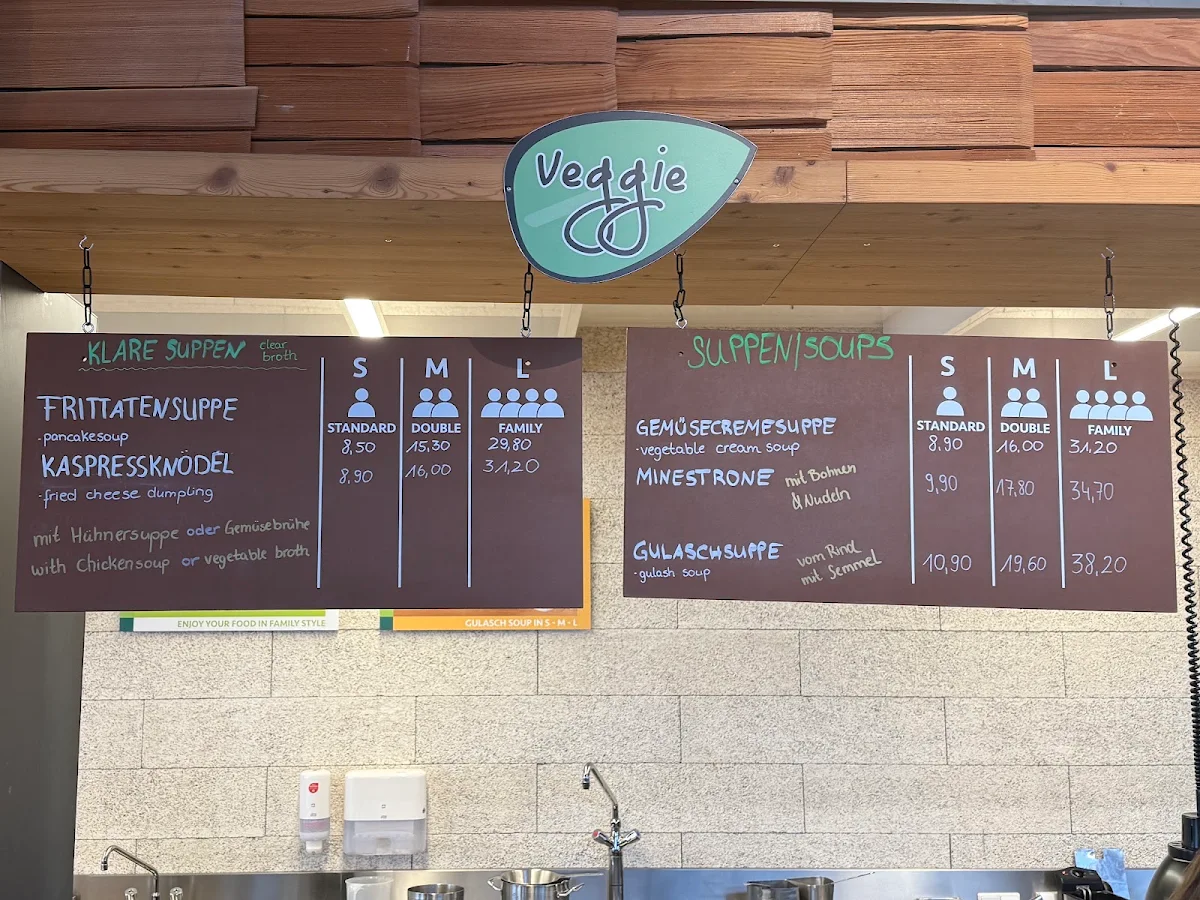 Veggie
KLARE SUPPEN clear broth
S M L
STANDARD DOUBLE FAMILY
FRITTATENSUPPE
-pancakesoup 8,50 15,30 29,80
KASPRESSKNÖDEL 8,90 16,00 31,20
-fried cheese dumpling
mit Hühnersuppe oder Gemüsebrühe
with Chickensoup or vegetable broth
SUPPEN/SOUPS
S M L
STANDARD DOUBLE FAMILY
GEMÜSECREMESUPPE
-vegetable cream soup 8,90 16,00 31,20
MINESTRONE mit Bohnen & Nudeln 9,90 17,80 34,70
GULASCHSUPPE vom Rind mit Semmel 10,90 19,60 38,20
-gulash soup
ENJOY YOUR FOOD IN FAMILY STYLE
GULASCH SOUP IN S - M - L